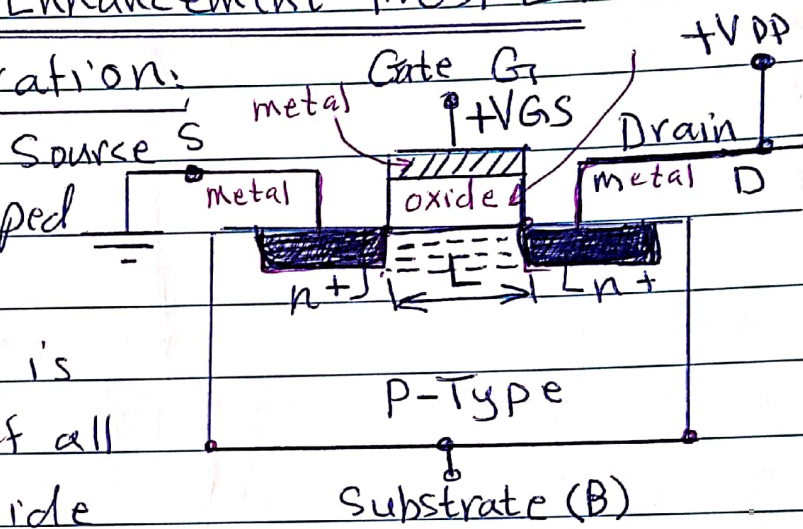 Enhancement
cation:
Gate G
+VDD
metal
+VGS
Source S
Drain
metal
oxide
metal D
ped
n+
L
n+
is
P-Type
f all
ide
Substrate (B)